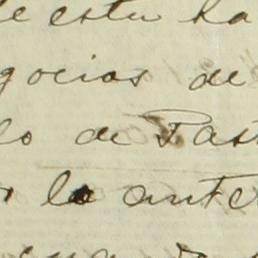 de esta ha
gocios de
lo de Past
la ante